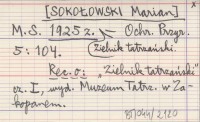 [SOKOŁOWSKI Marian] x
M.S. 1925 r. Ochr. Przyr.
5:104. (Zielnik tatrzański.
Rec. o: "Zielnik tatrzański"
cz. I, wyd. Muzeum Tatrz. w Za-
kopanem.
2120